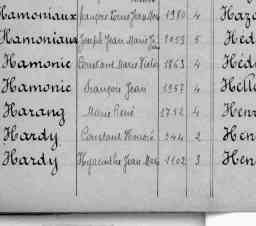 Hamoniaux François Louis Jean Marie 1980 4 Haz
Hamoniaux Joseph Jean Marie 1059 5 Héd
Hamonic Constant Marie Victor 1863 4 Héd
Hamonic François Jean 1957 4 Hell
Harang Marie René 1712 4 Hen
Hardy Constant Honoré 344 2 Hen
Hardy Hyacinthe Jean Marie 1102 3 Hen